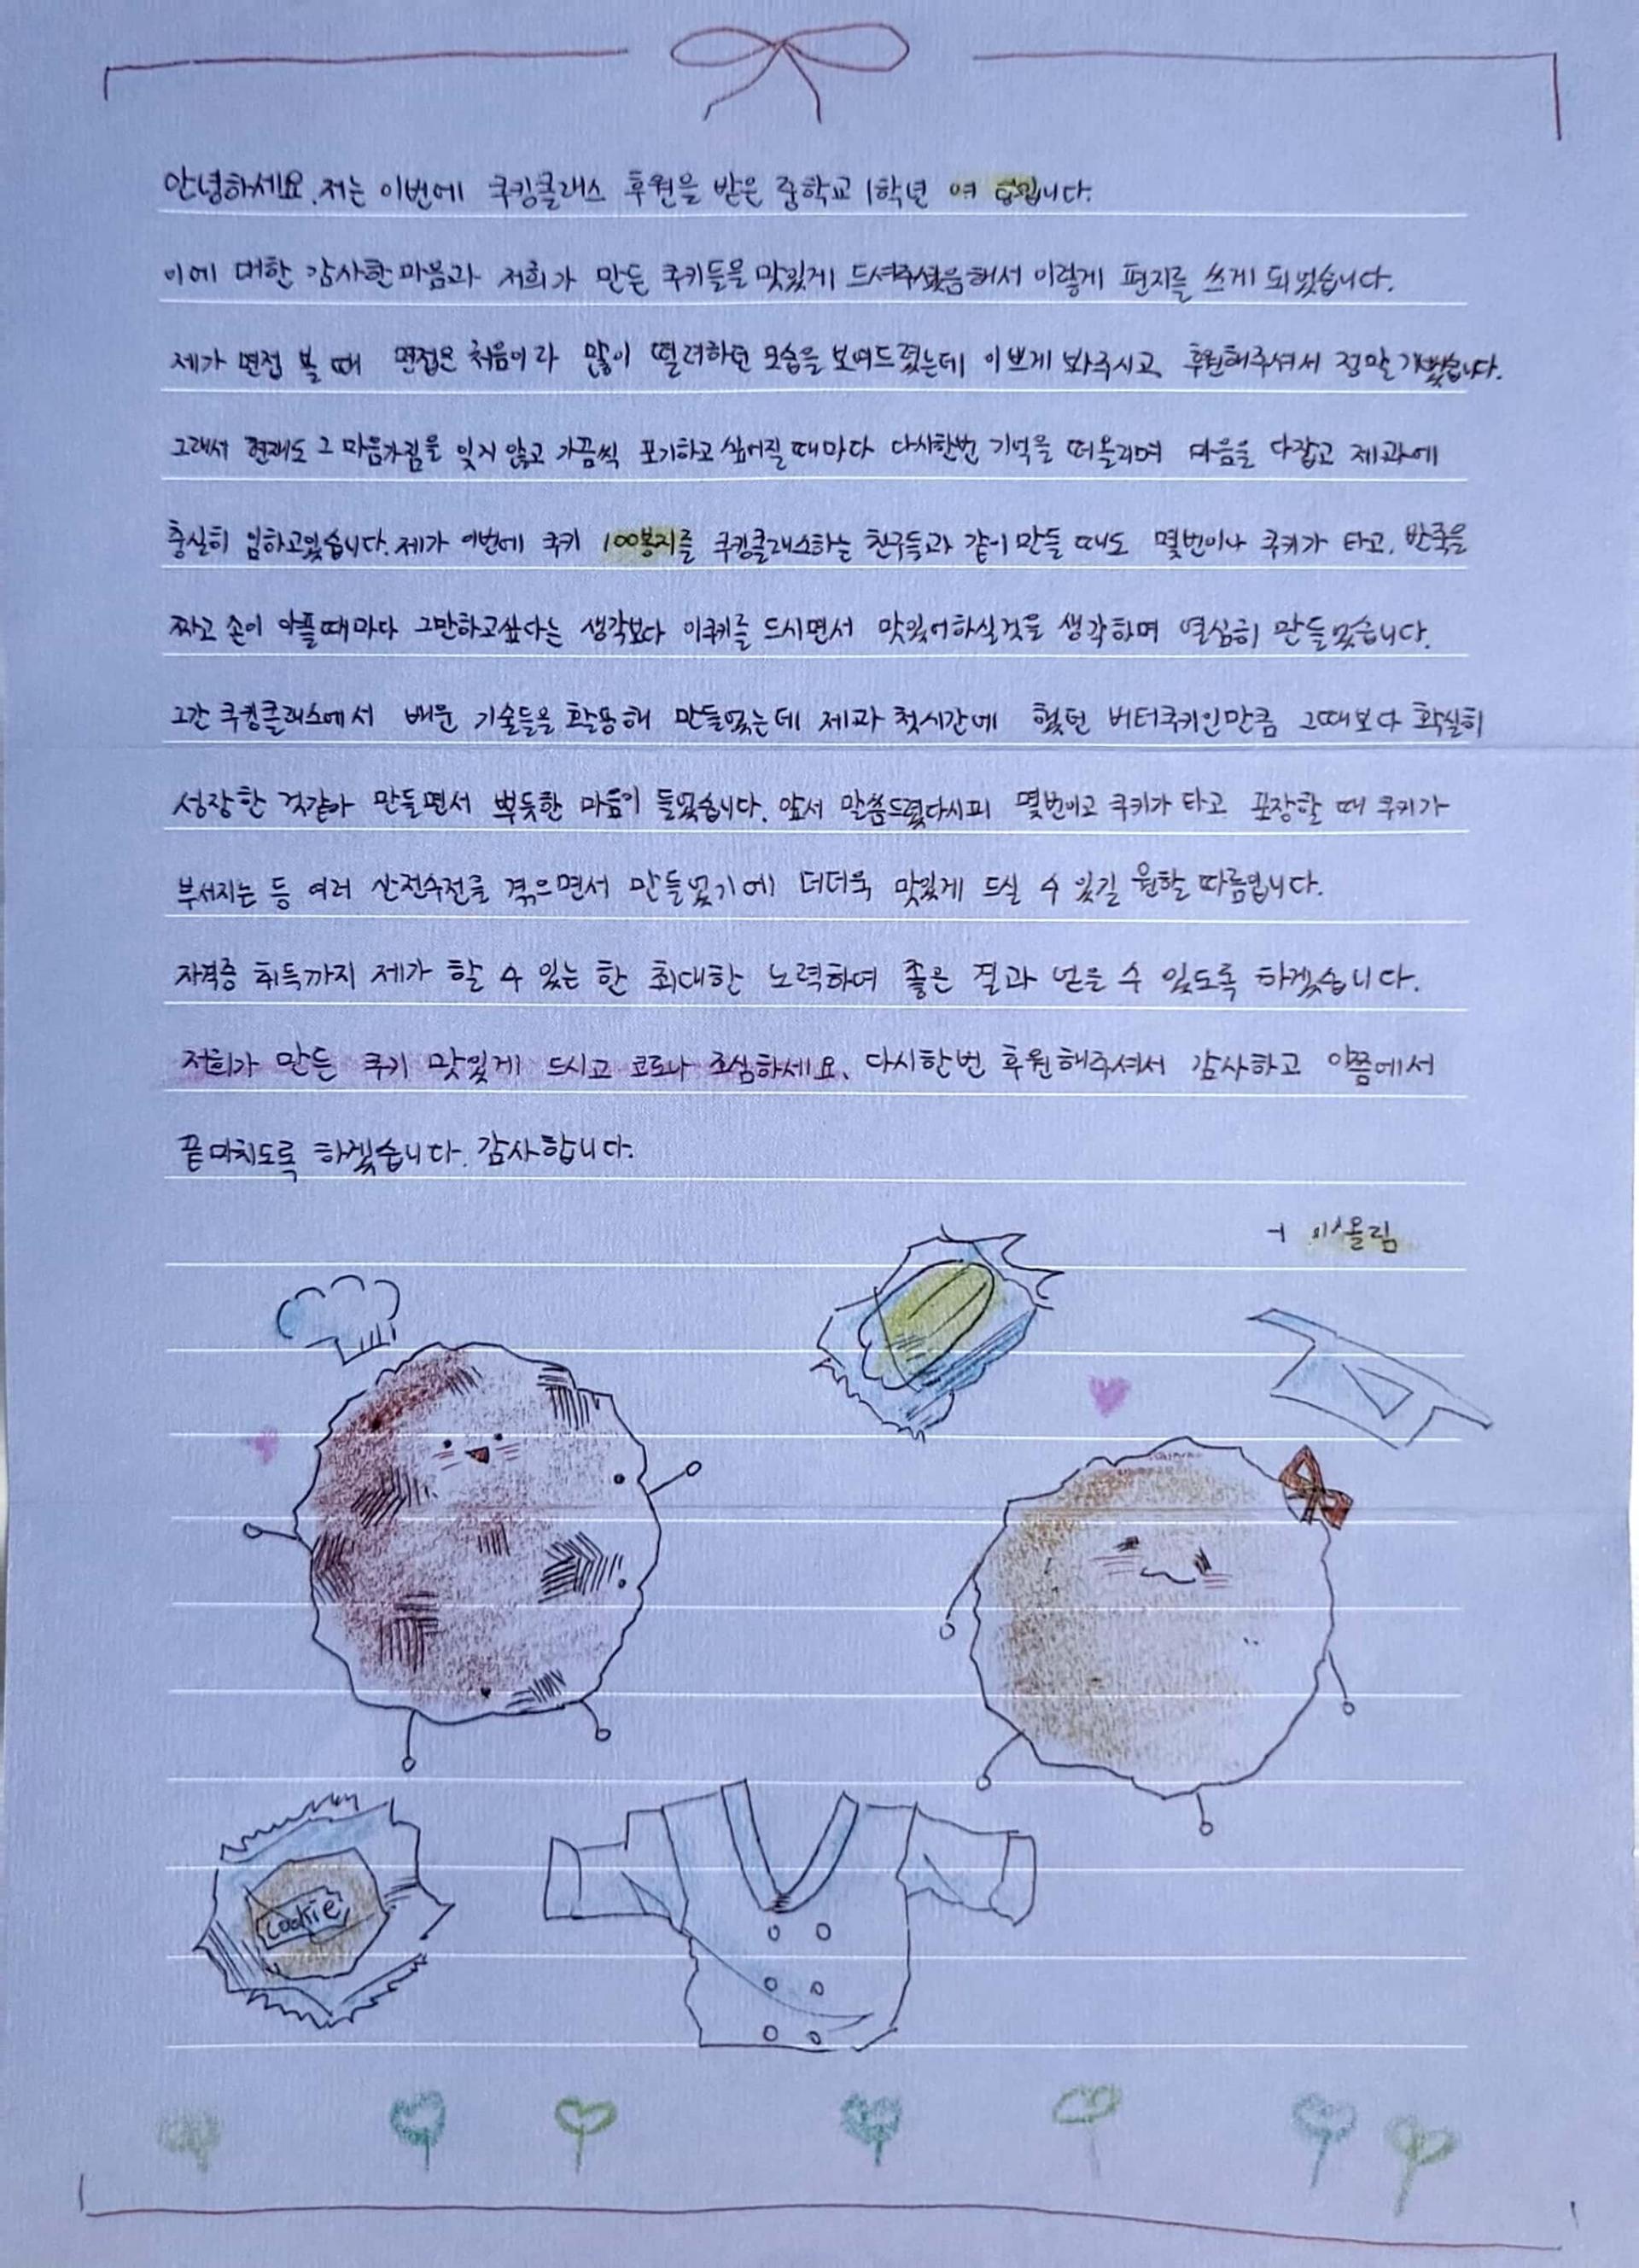 안녕하세요. 저는 이번에 쿠킹클래스 후원을 받은 중학교 1학년 입니다.
이에 대한 감사한 마음과 저희가 만든 쿠키들을 맛있게 드셔주셨음해서 이렇게 편지를 쓰게 되었습니다.
제가 면접 볼 때 면접은 처음이라 많이 떨려하던 모습을 보여드렸는데 이쁘게 봐주시고 후원해주셔서 정말 기뻤습니다.
그래서 현재도 그 마음가짐을 잊지 않고 가끔씩 포기하고 싶어질 때마다 다시한번 기억을 떠올리며 마음을 다잡고 제과에
충실히 임하고있습니다. 제가 이번에 쿠키 100봉지를 쿠킹클래스하는 친구들과 같이 만들 때도 몇번이나 쿠키가 타고, 반죽을
짜고 손이 아플때마다 그만하고싶다는 생각보다 이쿠키를 드시면서 맛있어하실것을 생각하며 열심히 만들었습니다.
그간 쿠킹클래스에서 배운 기술들을 활용해 만들었는데 제과 첫시간에 했던 버터쿠키인만큼 그때보다 확실히
성장한 것같아 만들면서 뿌듯한 마음이 들었습니다. 앞서 말씀드렸다시피 몇번이고 쿠키가 타고 포장할 때 쿠키가
부서지는 등 여러 산전수전를 겪으면서 만들었기에 더더욱 맛있게 드실 수 있길 원할 따름입니다.
자격증 취득까지 제가 할 수 있는 한 최대한 노력하여 좋은 결과 얻을 수 있도록 하겠습니다.
저희가 만든 쿠키 맛있게 드시고 코로나 조심하세요. 다시한번 후원해주셔서 감사하고 이쯤에서
끝마치도록 하겠습니다. 감사합니다.
올림
cookie